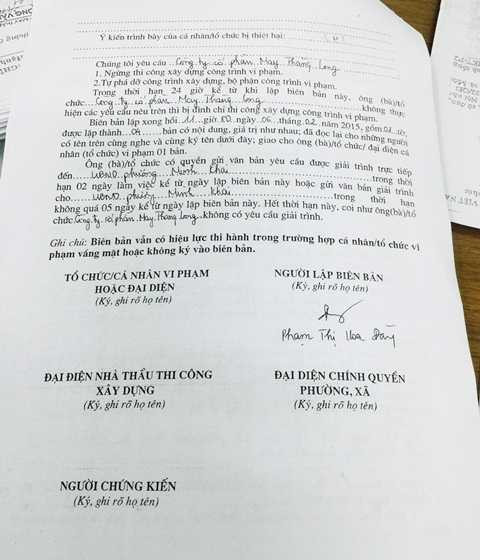 Ý kiến trình bày của cá nhân/tổ chức bị thiệt hại:
Chúng tôi yêu cầu: Công ty cổ phần May Thăng Long
1. Ngừng thi công xây dựng công trình vi phạm.
2. Tự phá dỡ công trình xây dựng, bộ phận công trình vi phạm.
Trong thời hạn 24 giờ kể từ khi lập biên bản này, ông (bà)/tổ
chức Công ty cổ phần May Thăng Long không thực
hiện các yêu cầu nêu trên thì bị đình chỉ thi công xây dựng công trình vi phạm.
Biên bản lập xong hồi 11 giờ 00 ngày 06 tháng 02 năm 2015, gồm 02 tờ,
được lập thành 04 bản có nội dung, giá trị như nhau; đã đọc lại cho những người
có tên trên cùng nghe và cùng ký tên dưới đây; giao cho ông (bà)/tổ chức/ đại diện cá
nhân (tổ chức) vi phạm 01 bản.
Ông (bà)/tổ chức có quyền gửi văn bản yêu cầu được giải trình trực tiếp
đến UBND phường Minh Khai trong thời
hạn 02 ngày làm việc kể từ ngày lập biên bản này hoặc gửi văn bản giải trình
cho UBND phường Minh Khai trong thời hạn
không quá 05 ngày kể từ ngày lập biên bản này. Hết thời hạn này, coi như ông(bà)/tổ
chức Công ty cổ phần May Thăng Long không có yêu cầu giải trình.
Ghi chú: Biên bản vẫn có hiệu lực thi hành trong trường hợp cá nhân/tổ chức vi
phạm vắng mặt hoặc không ký vào biên bản.
TỔ CHỨC/CÁ NHÂN VI PHẠM
HOẶC ĐẠI DIỆN
(Ký, ghi rõ họ tên)
NGƯỜI LẬP BIÊN BẢN
(Ký, ghi rõ họ tên)
Phạm Thị Hoa
ĐẠI ĐIỆN NHÀ THẦU THI CÔNG
XÂY DỰNG
(Ký, ghi rõ họ tên)
ĐẠI DIỆN CHÍNH QUYỀN
PHƯỜNG, XÃ
(Ký, ghi rõ họ tên)
NGƯỜI CHỨNG KIẾN
(Ký, ghi rõ họ tên)